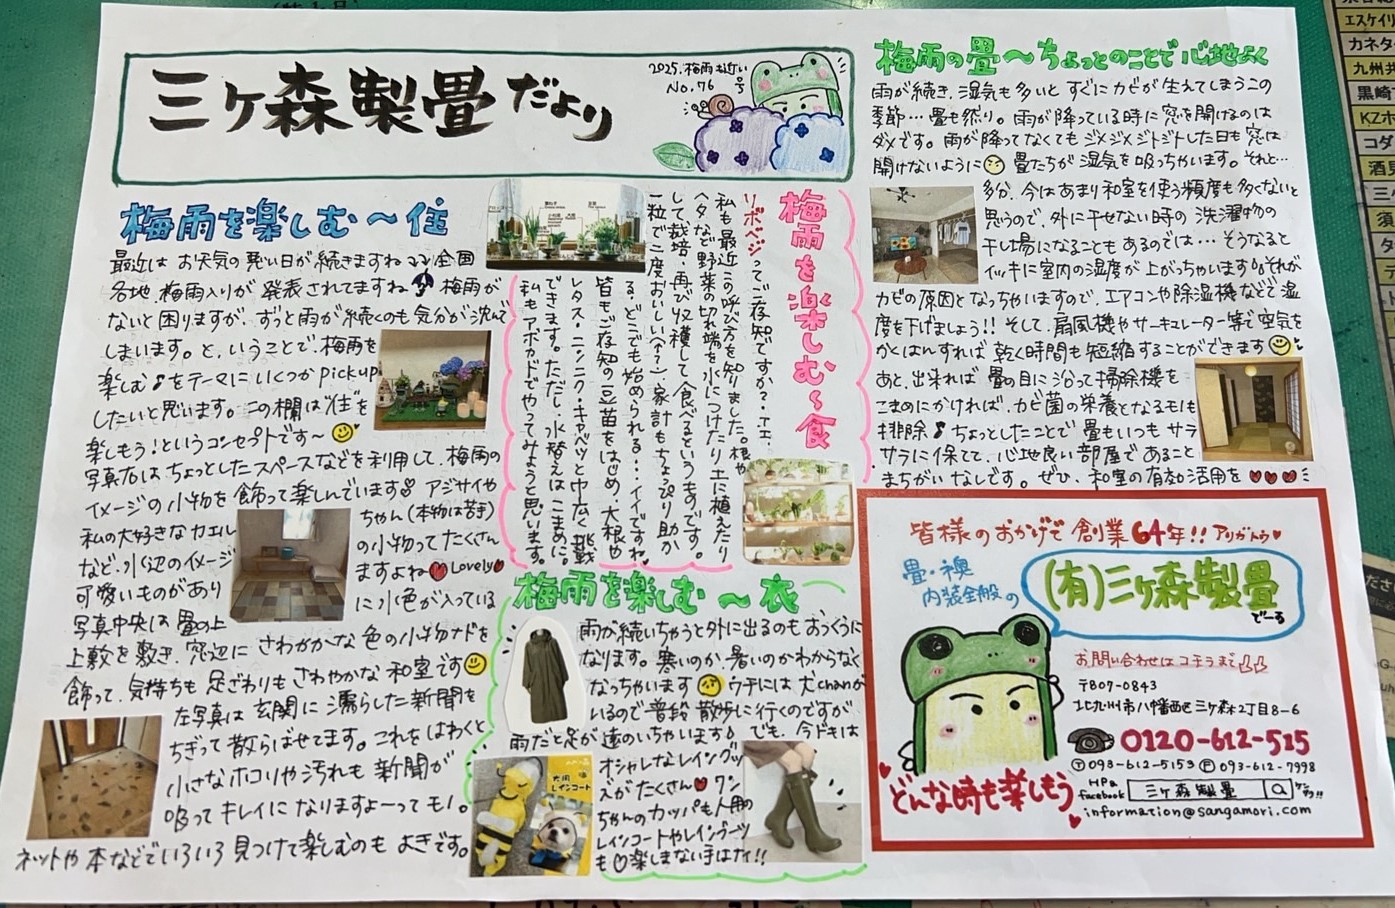 三ヶ森製畳だより
2025.梅雨も近い
No.76号
梅雨を楽しむ〜住
最近は お天気の悪い日が続きますね 全国
各地 梅雨入りが 発表されてますね 梅雨が
ないと困りますが、ずっと雨が続くのも気分が沈んで
しまいます。と、いうことで、梅雨を
楽しむ♪をテーマにいくつかpick up
したいと思います。この欄は"住"を
楽しもう!というコンセプトです〜
写真右は ちょっとしたスペースなどを利用して、梅雨の
イメージの小物を飾って楽しんでいます アジサイや
私の大好きなカエル
ちゃん(本物は苦手)
など、水辺のイメージ
の小物ってたくさん
可愛いものがあり
ますよね♥Lovely♥
写真中央は 畳の上
に水色が入っている
上敷を敷き、窓辺に さわやかな色の小物ナドを
飾って、気持ちも 足ざわりも さわやかな 和室です
左写真は 玄関に 濡らした新聞を
ちぎって 散らばせてます。これをはわくと
小さなホコリや汚れも 新聞が
吸ってキレイに なりますよ〜っても!。
ネットや本などでいろいろ見つけて楽しむのも よきです。
梅雨を楽しむ〜食
リボベジってご存知ですか?・エエ、
私も最近この呼び方を知りました。根や
ヘタなど野菜の切れ端を水につけたり土に植えたり
して栽培、再び収穫して食べるというものです。
一粒で二度おいしい(?)家計もちょっぴり助か
る、どこでも始められる…イイですね
皆もご存知の豆苗をはじめ、大根や
レタス・ニンニク・キャベツと巾広く挑戦
できます。ただし、水替えはこまめに。
私もアボカドでやってみようと思います。
梅雨を楽しむ 〜 衣
雨が続いちゃうと外に出るのもおっくうに
なります。寒いのか、暑いのかわからなく
なっちゃいます ウチには犬chanが
いるので普段 散歩に行くのですが
雨だと足が遠のいちゃいます でも、今ドキは
オシャレなレイングッ
ズがたくさん♥ワン
ちゃんのカッパも人用の
レインコートやレインブーツ
も♡楽しまない手はナイ!!
犬用
レインコート
梅雨の畳〜ちょっとのことで心地よく
雨が続き、湿気も多いと すぐにカビが生えてしまうこの
季節…畳も然り。雨が降っている時に窓を開けるのは
ダメです。雨が降ってなくても ジメジメジトジトした日も窓は
開けないように 畳たちが 湿気を吸っちゃいます。それと…
多分、今はあまり和室を使う頻度も多くないと
思うので、外に干せない時の 洗濯物の
干し場になることもあるのでは… そうなると
イッキに室内の湿度が上がっちゃいます それが
カビの原因となっちゃいますので、エアコンや除湿機などで湿
度を下げましょう!! そして、扇風機やサーキュレーター等で空気を
かくはんすれば 乾く時間も短縮することができます
あと、出来れば 畳の目に沿って掃除機を
こまめにかければ、カビ菌の栄養となるモノも
排除♪ ちょっとしたことで 畳もいつも サラ
サラに保てて、心地良い部屋であること
まちがいなしです。ぜひ、和室の有効活用を ♥♥♥
皆様のおかげで 創業64年!! アリガトウ♥
畳・襖
内装全般の
(有)三ヶ森製畳
でーる
お問い合わせは コチラまで
〒807-0843
北九州市八幡西区三ヶ森2丁目8-6
0120-612-515
Ⓣ093-612-5153 Ⓕ093-612-7998
HP&
facebook
三ヶ森製畳
information@sangamori.com
どんな時も楽しもう
エスケイリ
カネタ
九州共
黒崎
KZホ
コダ
酒見
三